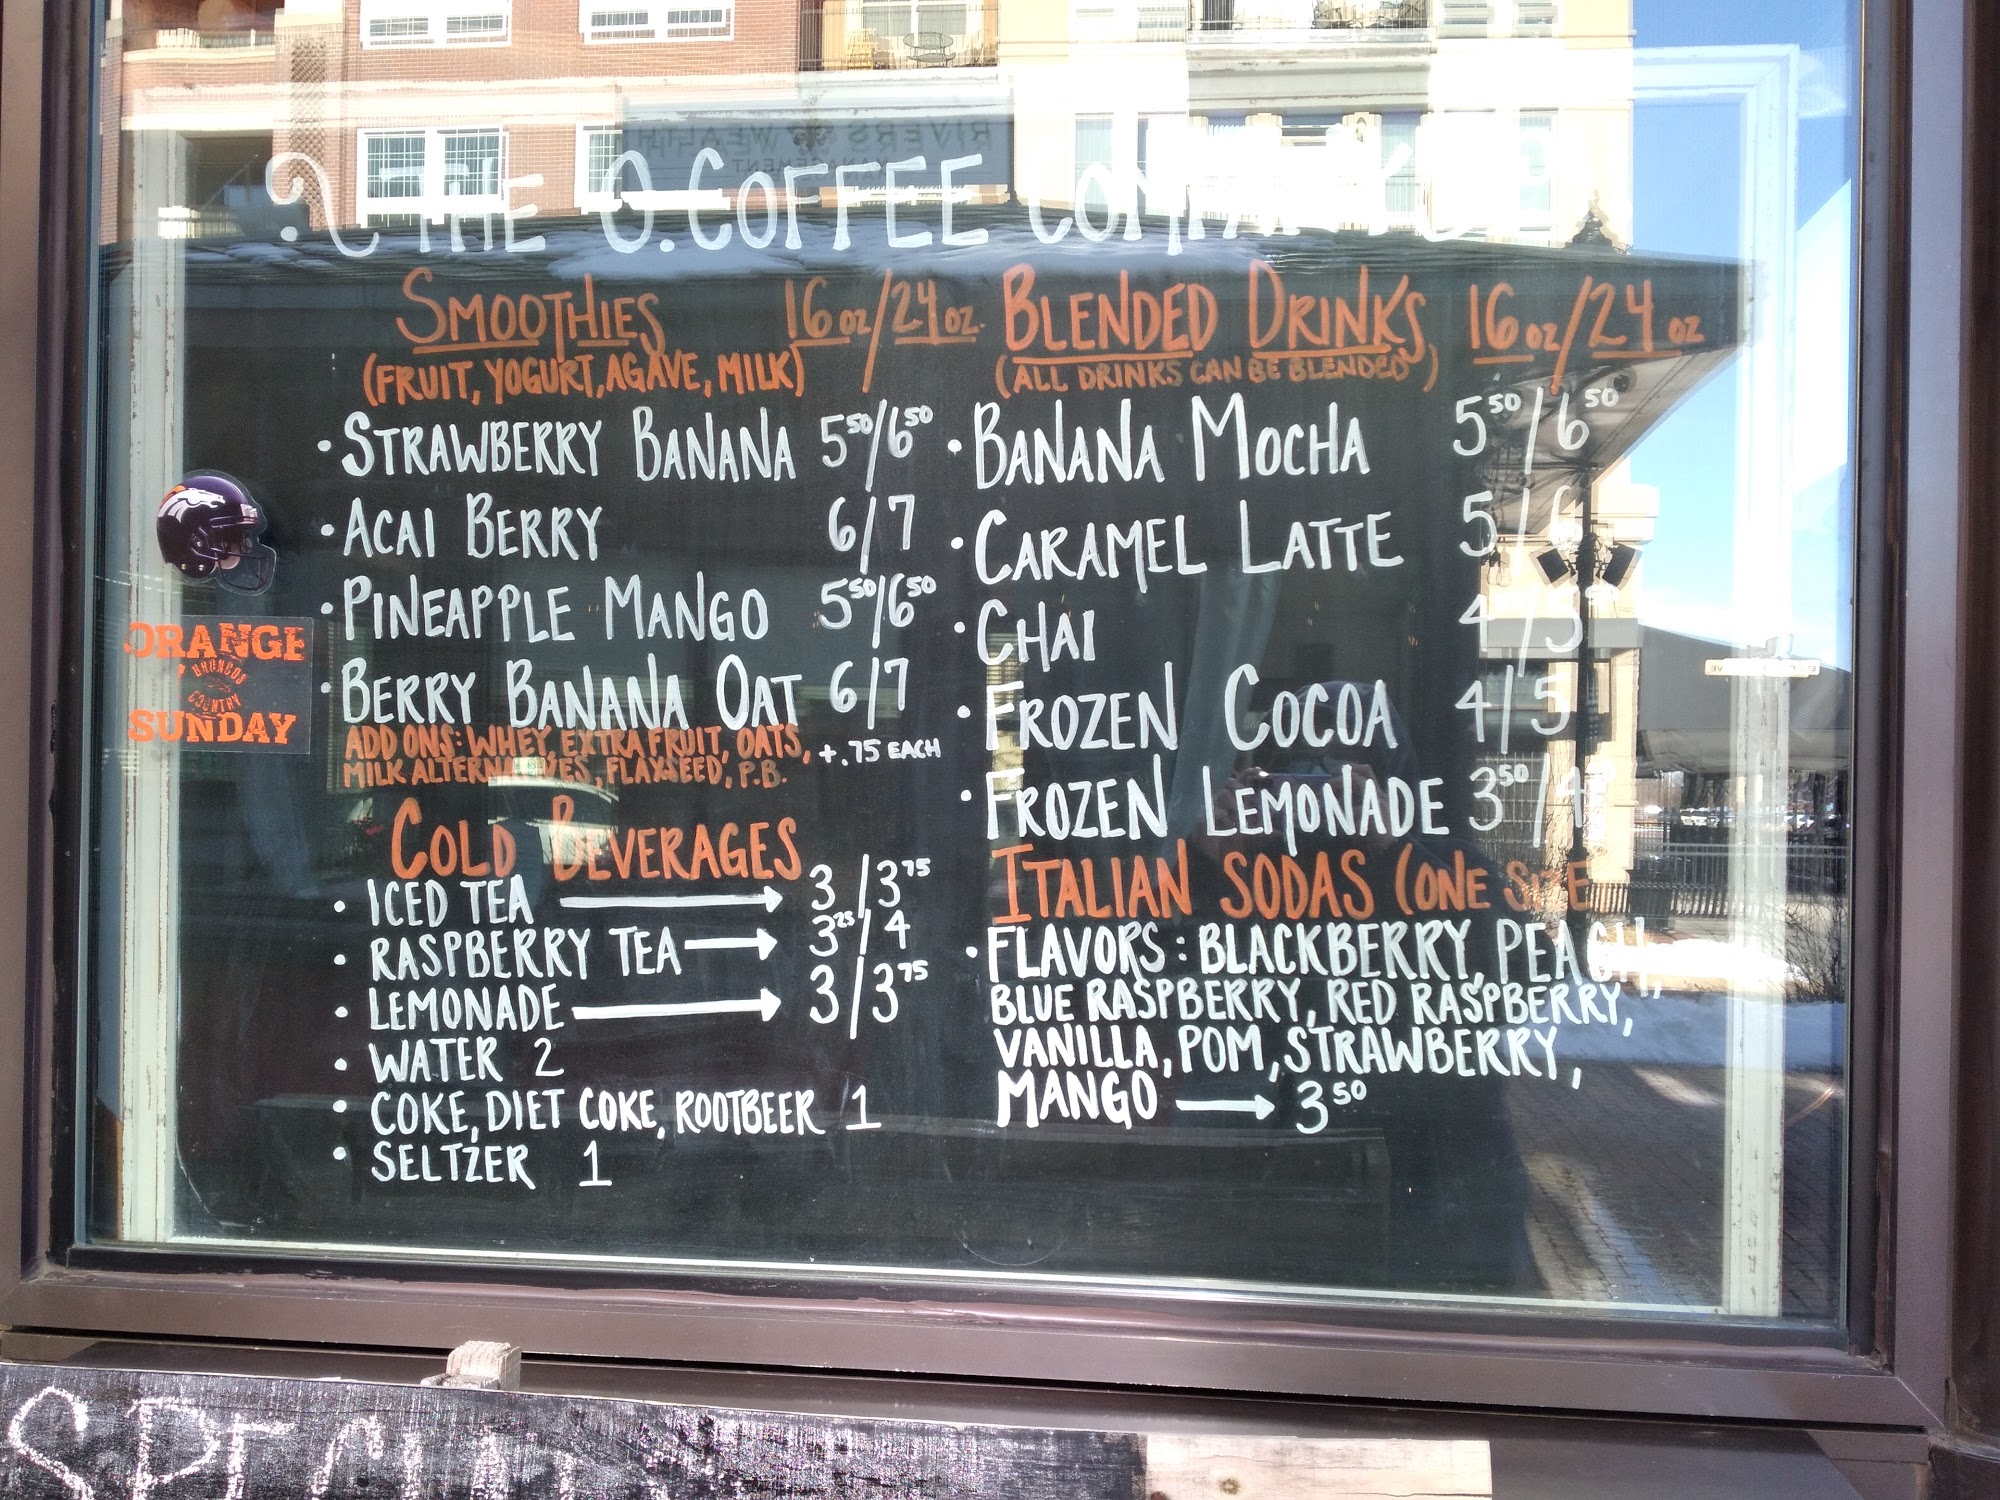 THE O. COFFEE COMPANY
SMOOTHIES 16 oz/24 oz.
(FRUIT, YOGURT, AGAVE, MILK)
• STRAWBERRY BANANA 5⁵⁰/6⁵⁰
• ACAI BERRY 6/7
• PINEAPPLE MANGO 5⁵⁰/6⁵⁰
• BERRY BANANA OAT 6/7
ADD ONS: WHEY, EXTRA FRUIT, OATS, +.75 EACH
MILK ALTERNATIVES, FLAXSEED, P.B.
COLD BEVERAGES
• ICED TEA → 3/3⁷⁵
• RASPBERRY TEA → 3²⁵/4
• LEMONADE → 3/3⁷⁵
• WATER 2
• COKE, DIET COKE, ROOTBEER 1
• SELTZER 1
BLENDED DRINKS 16 oz/24 oz
(ALL DRINKS CAN BE BLENDED)
• BANANA MOCHA 5⁵⁰/6⁵⁰
• CARAMEL LATTE 5/6
• CHAI 4/5
• FROZEN COCOA 4/5
• FROZEN LEMONADE 3⁵⁰/4
ITALIAN SODAS (ONE SIZE
• FLAVORS: BLACKBERRY, PEACH,
BLUE RASPBERRY, RED RASPBERRY,
VANILLA, POM, STRAWBERRY,
MANGO → 3⁵⁰
ORANGE
BRONCOS
COUNTRY
SUNDAY
RIVERS WEALTH
MANAGEMENT